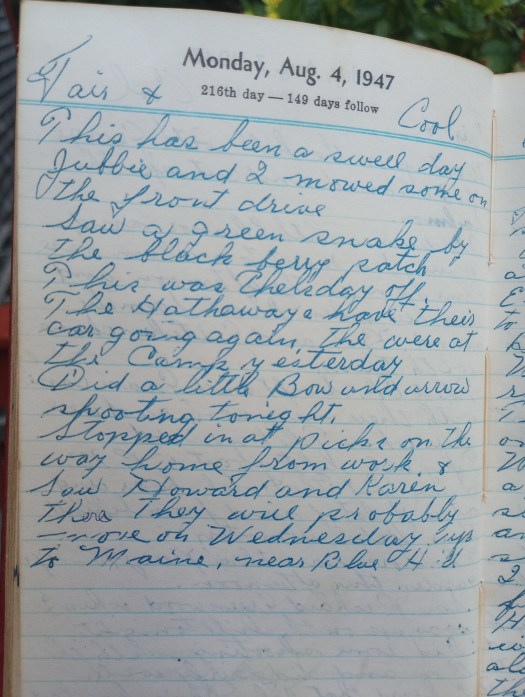 Monday, Aug. 4, 1947
216th day — 149 days follow
Fair & Cool
This has been a swell day
Jubbie and I mowed some on
the front drive
Saw a green snake by
the black berry patch
This was Thelsday off.
The Hathaways have their
car going again, the were at
the Camp yesterday
Did a little Bow and arrow
shooting tonight.
Stopped in at Dicks on the
way home from work &
Saw Howard and Karen
there They will probably
move on Wednesday up
to Maine, near Blue Hill